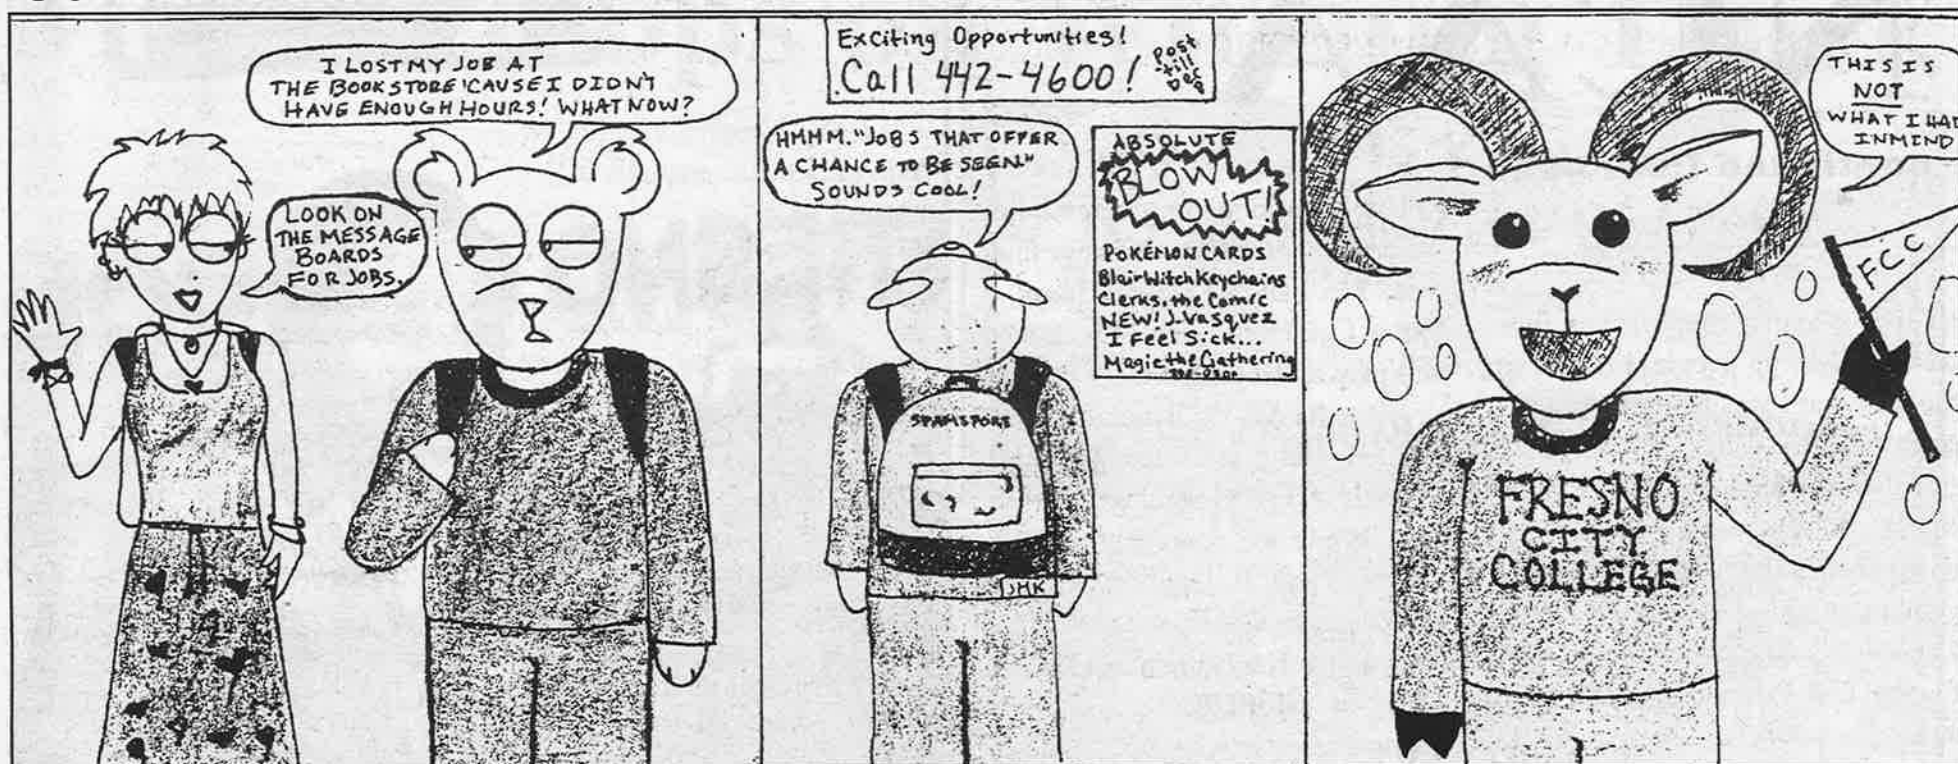 I LOST MY JOB AT
THE BOOKSTORE 'CAUSE I DIDN'T
HAVE ENOUGH HOURS! WHAT NOW?
LOOK ON
THE MESSAGE
BOARDS
FOR JOBS.
Exciting Opportunities!
Call 442-4600!
Post
till
Dec
HMHM. "JOBS THAT OFFER
A CHANCE TO BE SEEN."
SOUNDS COOL!
ABSOLUTE
BLOW
OUT!
POKÉMON CARDS
Blair Witch Keychains
Clerks, the Comic
NEW! J. Vasquez
I Feel Sick...
Magic the Gathering
SPAMSPORT
JHK
THIS IS
NOT
WHAT I HAD
IN MIND
FCC
FRESNO
CITY
COLLEGE